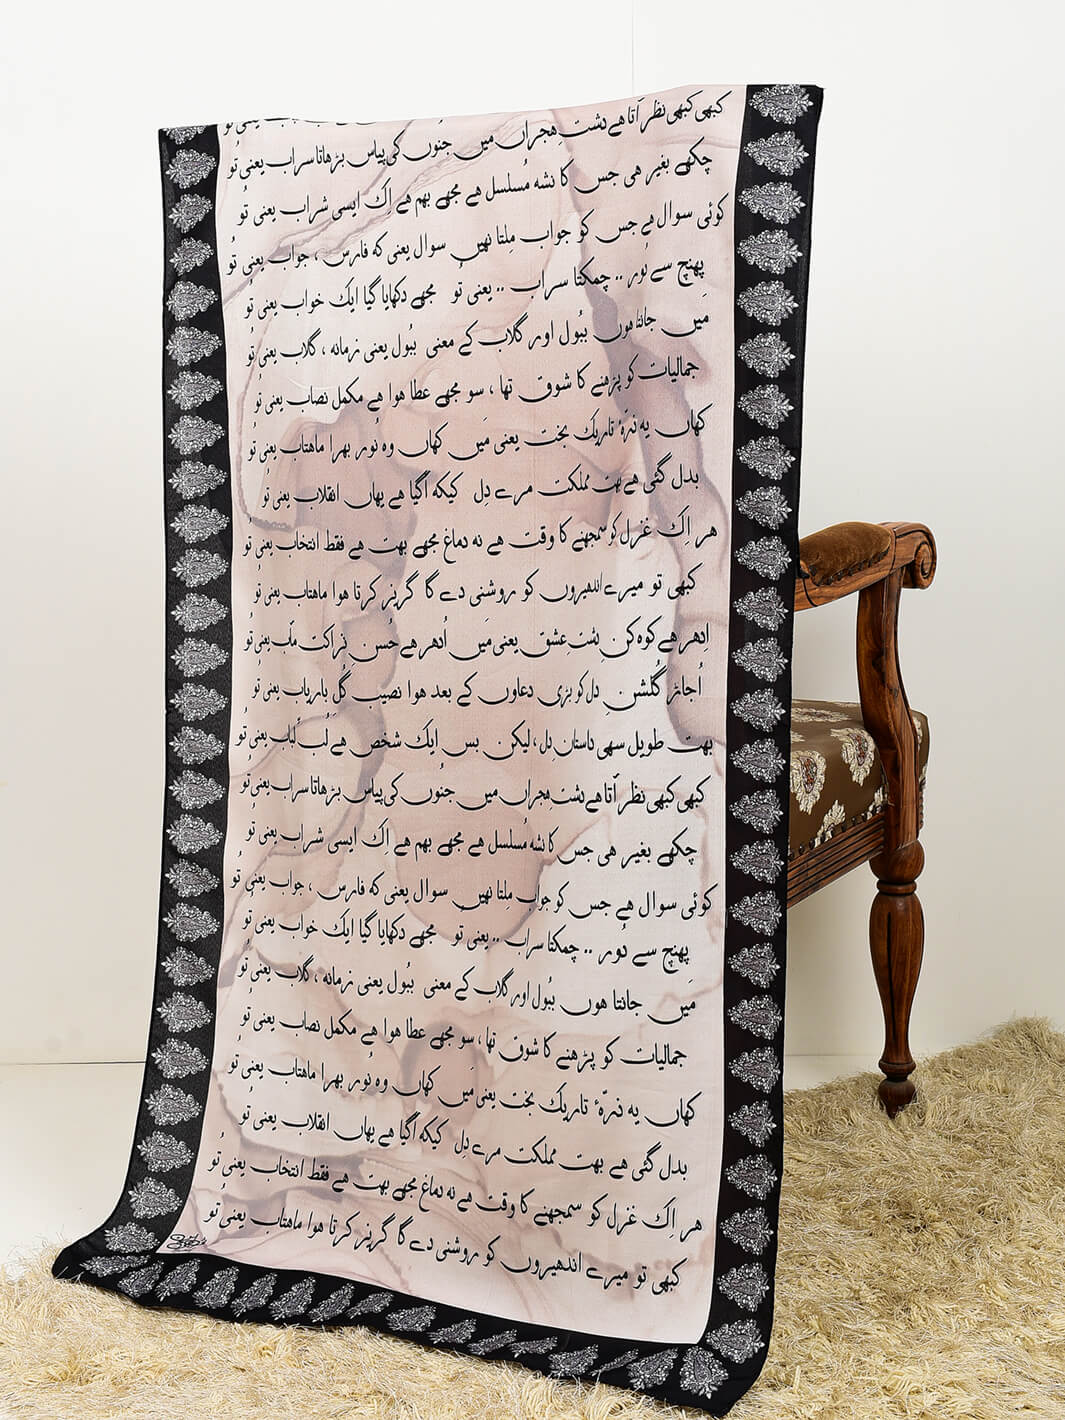 کبھی کبھی نظر آتا ہے دشتِ ہجراں میں جنُوں کی پیاس بڑھاتا سراب یعنی تُو
چکھے بغیر ھی جس کا نشہ مُسلسل ھے مجھے بھم ھے اِک ایسی شراب یعنی تُو
کوئی سوال ھے جس کو جواب مِلتا نھیں سوال یعنی کہ فارس ، جواب یعنی تُو
پھنچ سے دُور .. چمکتا سراب .. یعنی تُو مجھے دکھایا گیا ایک خواب یعنی تُو
مَیں جانتا ھوں ببُول اور گلاب کے معنی ببُول یعنی زمانہ ، گلاب یعنی تُو
جمالیات کو پڑھنے کا شوق تھا ، سو مجھے عطا ھوا ھے مکمل نصاب یعنی تُو
کھاں یہ ذرّۂ تاریک بخت یعنی مَیں کھاں وہ نُور بھرا ماھتاب یعنی تُو
بدل گئی ھے بھت مملکت مرے دِل کی کہ آگیا ھے یھاں انقلاب یعنی تُو
ھر اِک غزل کو سمجھنے کا وقت ھے نہ دماغ مجھے بھت ھے فقط انتخاب یعنی تُو
کبھی تو میرے اندھیروں کو روشنی دے گا گریز کرتا ھوا ماھتاب یعنی تُو
اِدھر ھے کوہ کنِ دشتِ عشق یعنی مَیں اُدھر ھے حُسن نزاکت مآب یعنی تُو
اُجاڑ گُلشنِ دِل کو بڑی دعاوں کے بعد ھوا نصیب گُلِ باریاب یعنی تُو
بھت طویل سھی داستانِ دِل ، لیکن بس ایک شخص ھے لُبِ لُباب یعنی تُو
کبھی کبھی نظر آتا ھے دشتِ ھجراں میں جنُوں کی پیاس بڑھاتا سراب یعنی تُو
چکھے بغیر ھی جس کا نشہ مُسلسل ھے مجھے بھم ھے اِک ایسی شراب یعنی تُو
کوئی سوال ھے جس کو جواب مِلتا نھیں سوال یعنی کہ فارس ، جواب یعنی تُو
پھنچ سے دُور .. چمکتا سراب .. یعنی تُو مجھے دکھایا گیا ایک خواب یعنی تُو
مَیں جانتا ھوں ببُول اور گلاب کے معنی ببُول یعنی زمانہ ، گلاب یعنی تُو
جمالیات کو پڑھنے کا شوق تھا ، سو مجھے عطا ھوا ھے مکمل نصاب یعنی تُو
کھاں یہ ذرّۂ تاریک بخت یعنی مَیں کھاں وہ نُور بھرا ماھتاب یعنی تُو
بدل گئی ھے بھت مملکت مرے دِل کی کہ آگیا ھے یھاں انقلاب یعنی تُو
ھر اِک غزل کو سمجھنے کا وقت ھے نہ دماغ مجھے بھت ھے فقط انتخاب یعنی تُو
کبھی تو میرے اندھیروں کو روشنی دے گا گریز کرتا ھوا ماھتاب یعنی تُو